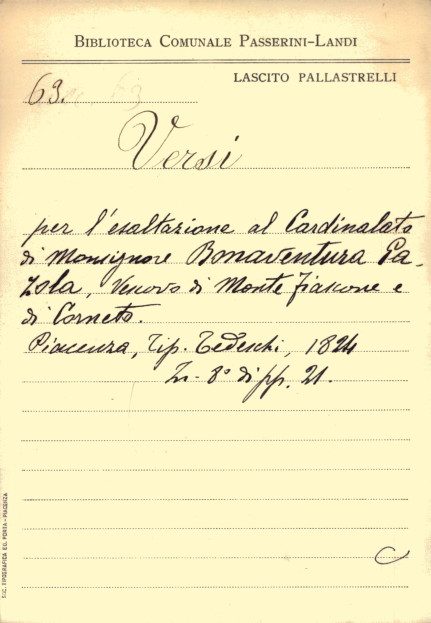 BIBLIOTECA COMUNALE PASSERINI-LANDI
LASCITO PALLASTRELLI
63.
Versi
per l'esaltazione al Cardinalato
di Monsignore Bonaventura Ga-
zola, Vescovo di Monte fiascone e
di Corneto.
Piacenza, Tip. Tedeschi, 1824
In-8° di pp. 21.
C
TIPOGRAFICA ED. PORTA-PIACENZA